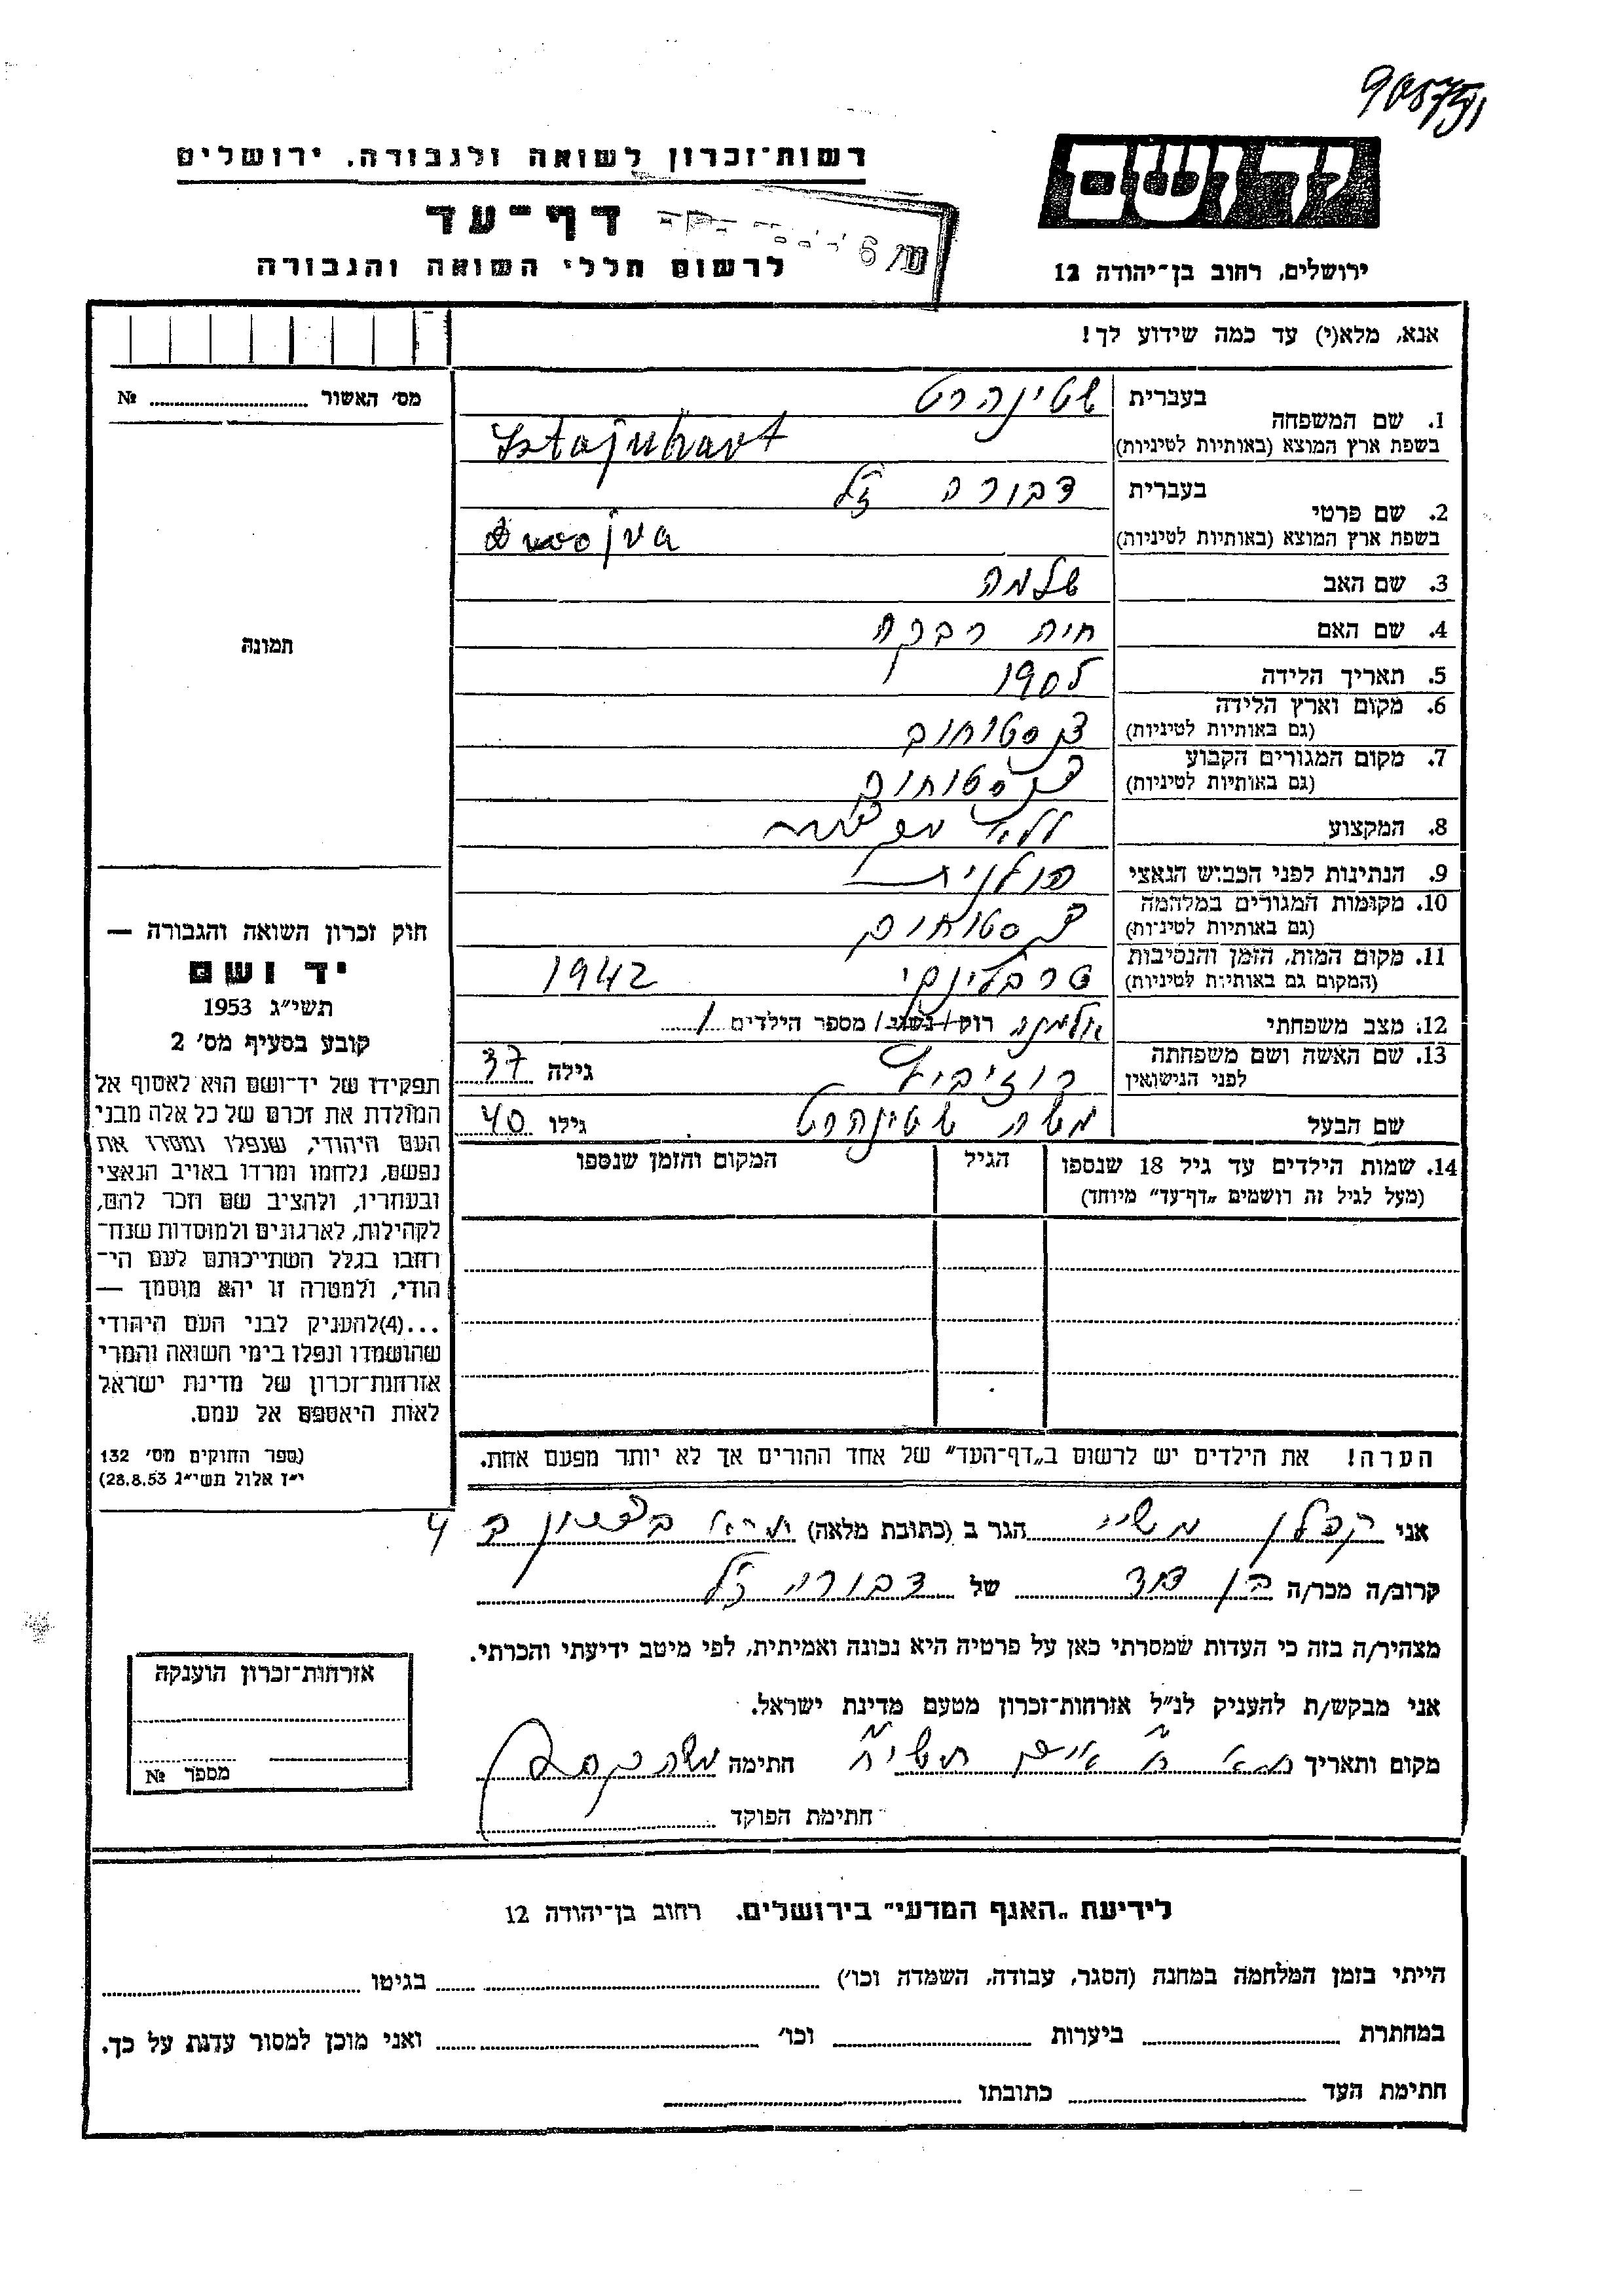 יד ושם
ירושלים, רחוב בן־יהודה 12
רשות־זכרון לשואה ולגבורה, ירושלים
דף־עד
לרשום חללי השואה והגבורה
אנא, מלא(י) עד כמה שידוע לך!
1. שם המשפחה
בעברית שטינהרט
בשפת ארץ המוצא (באותיות לטיניות) Sztajnhart
2. שם פרטי
בעברית דבורה ז"ל
בשפת ארץ המוצא (באותיות לטיניות) Dwojra
3. שם האב שלמה
4. שם האם חיה רבקה
5. תאריך הלידה 1905
6. מקום וארץ הלידה
(גם באותיות לטיניות) צ'נסטוחוב
7. מקום המגורים הקבוע
(גם באותיות לטיניות) צ'נסטוחוב
8. המקצוע
9. הנתינות לפני הכבוש הנאצי פולנית
10. מקומות המגורים במלחמה
(גם באותיות לטיניות) צ'נסטוחוב
11. מקום המות, הזמן והנסיבות
(המקום גם באותיות לטיניות) טרבלינקי 1942
12. מצב משפחתי אלמנה רוק/נשוי/ מספר הילדים 1
13. שם האשה ושם משפחתה
לפני הנישואין גילה 37
שם הבעל משה שטינהרט גילו 40
14. שמות הילדים עד גיל 18 שנספו
(מעל לגיל זה רושמים „דף־עד" מיוחד)
הגיל
המקום והזמן שנספו
הערה! את הילדים יש לרשום ב„דף־העד" של אחד ההורים אך לא יותר מפעם אחת.
מס' האשור № 
תמונה
חוק זכרון השואה והגבורה —
יד ושם
תשי"ג 1953
קובע בסעיף מס' 2
תפקידו של יד־ושם הוא לאסוף אל
המולדת את זכרם של כל אלה מבני
העם היהודי, שנפלו ומסרו את
נפשם, נלחמו ומרדו באויב הנאצי
ובעוזריו, ולהציב שם וזכר להם,
לקהילות, לארגונים ולמוסדות שנח־
רחבו בגלל השתייכותם לעם הי־
הודי, ולמטרה זו יהא מוסמך —
...(4)להעניק לבני העם היהודי
שהושמדו ונפלו בימי השואה והמרי
אזרחות־זכרון של מדינת ישראל
לאות היאספם אל עמם.
(ספר החוקים מס' 132
י"ז אלול תשי"ג 28.8.53)
אני קפלן הגר ב (כתובת מלאה)
קרוב/ה מכר/ה בן דוד של דבורה ז"ל
מצהיר/ה בזה כי העדות שמסרתי כאן על פרטיה היא נכונה ואמיתית, לפי מיטב ידיעתי והכרתי.
אני מבקש/ת להעניק לנ"ל אזרחות־זכרון מטעם מדינת ישראל.
מקום ותאריך חתימה
חתימת הפוקד
אזרחות־זכרון הוענקה
מספר №
לידיעת „האגף המדעי" בירושלים, רחוב בן־יהודה 12
הייתי בזמן המלחמה במחנה (הסגר, עבודה, השמדה וכו') בגיטו
במחתרת ביערות וכו' ואני מוכן למסור עדות על כך.
חתימת העד כתובתו